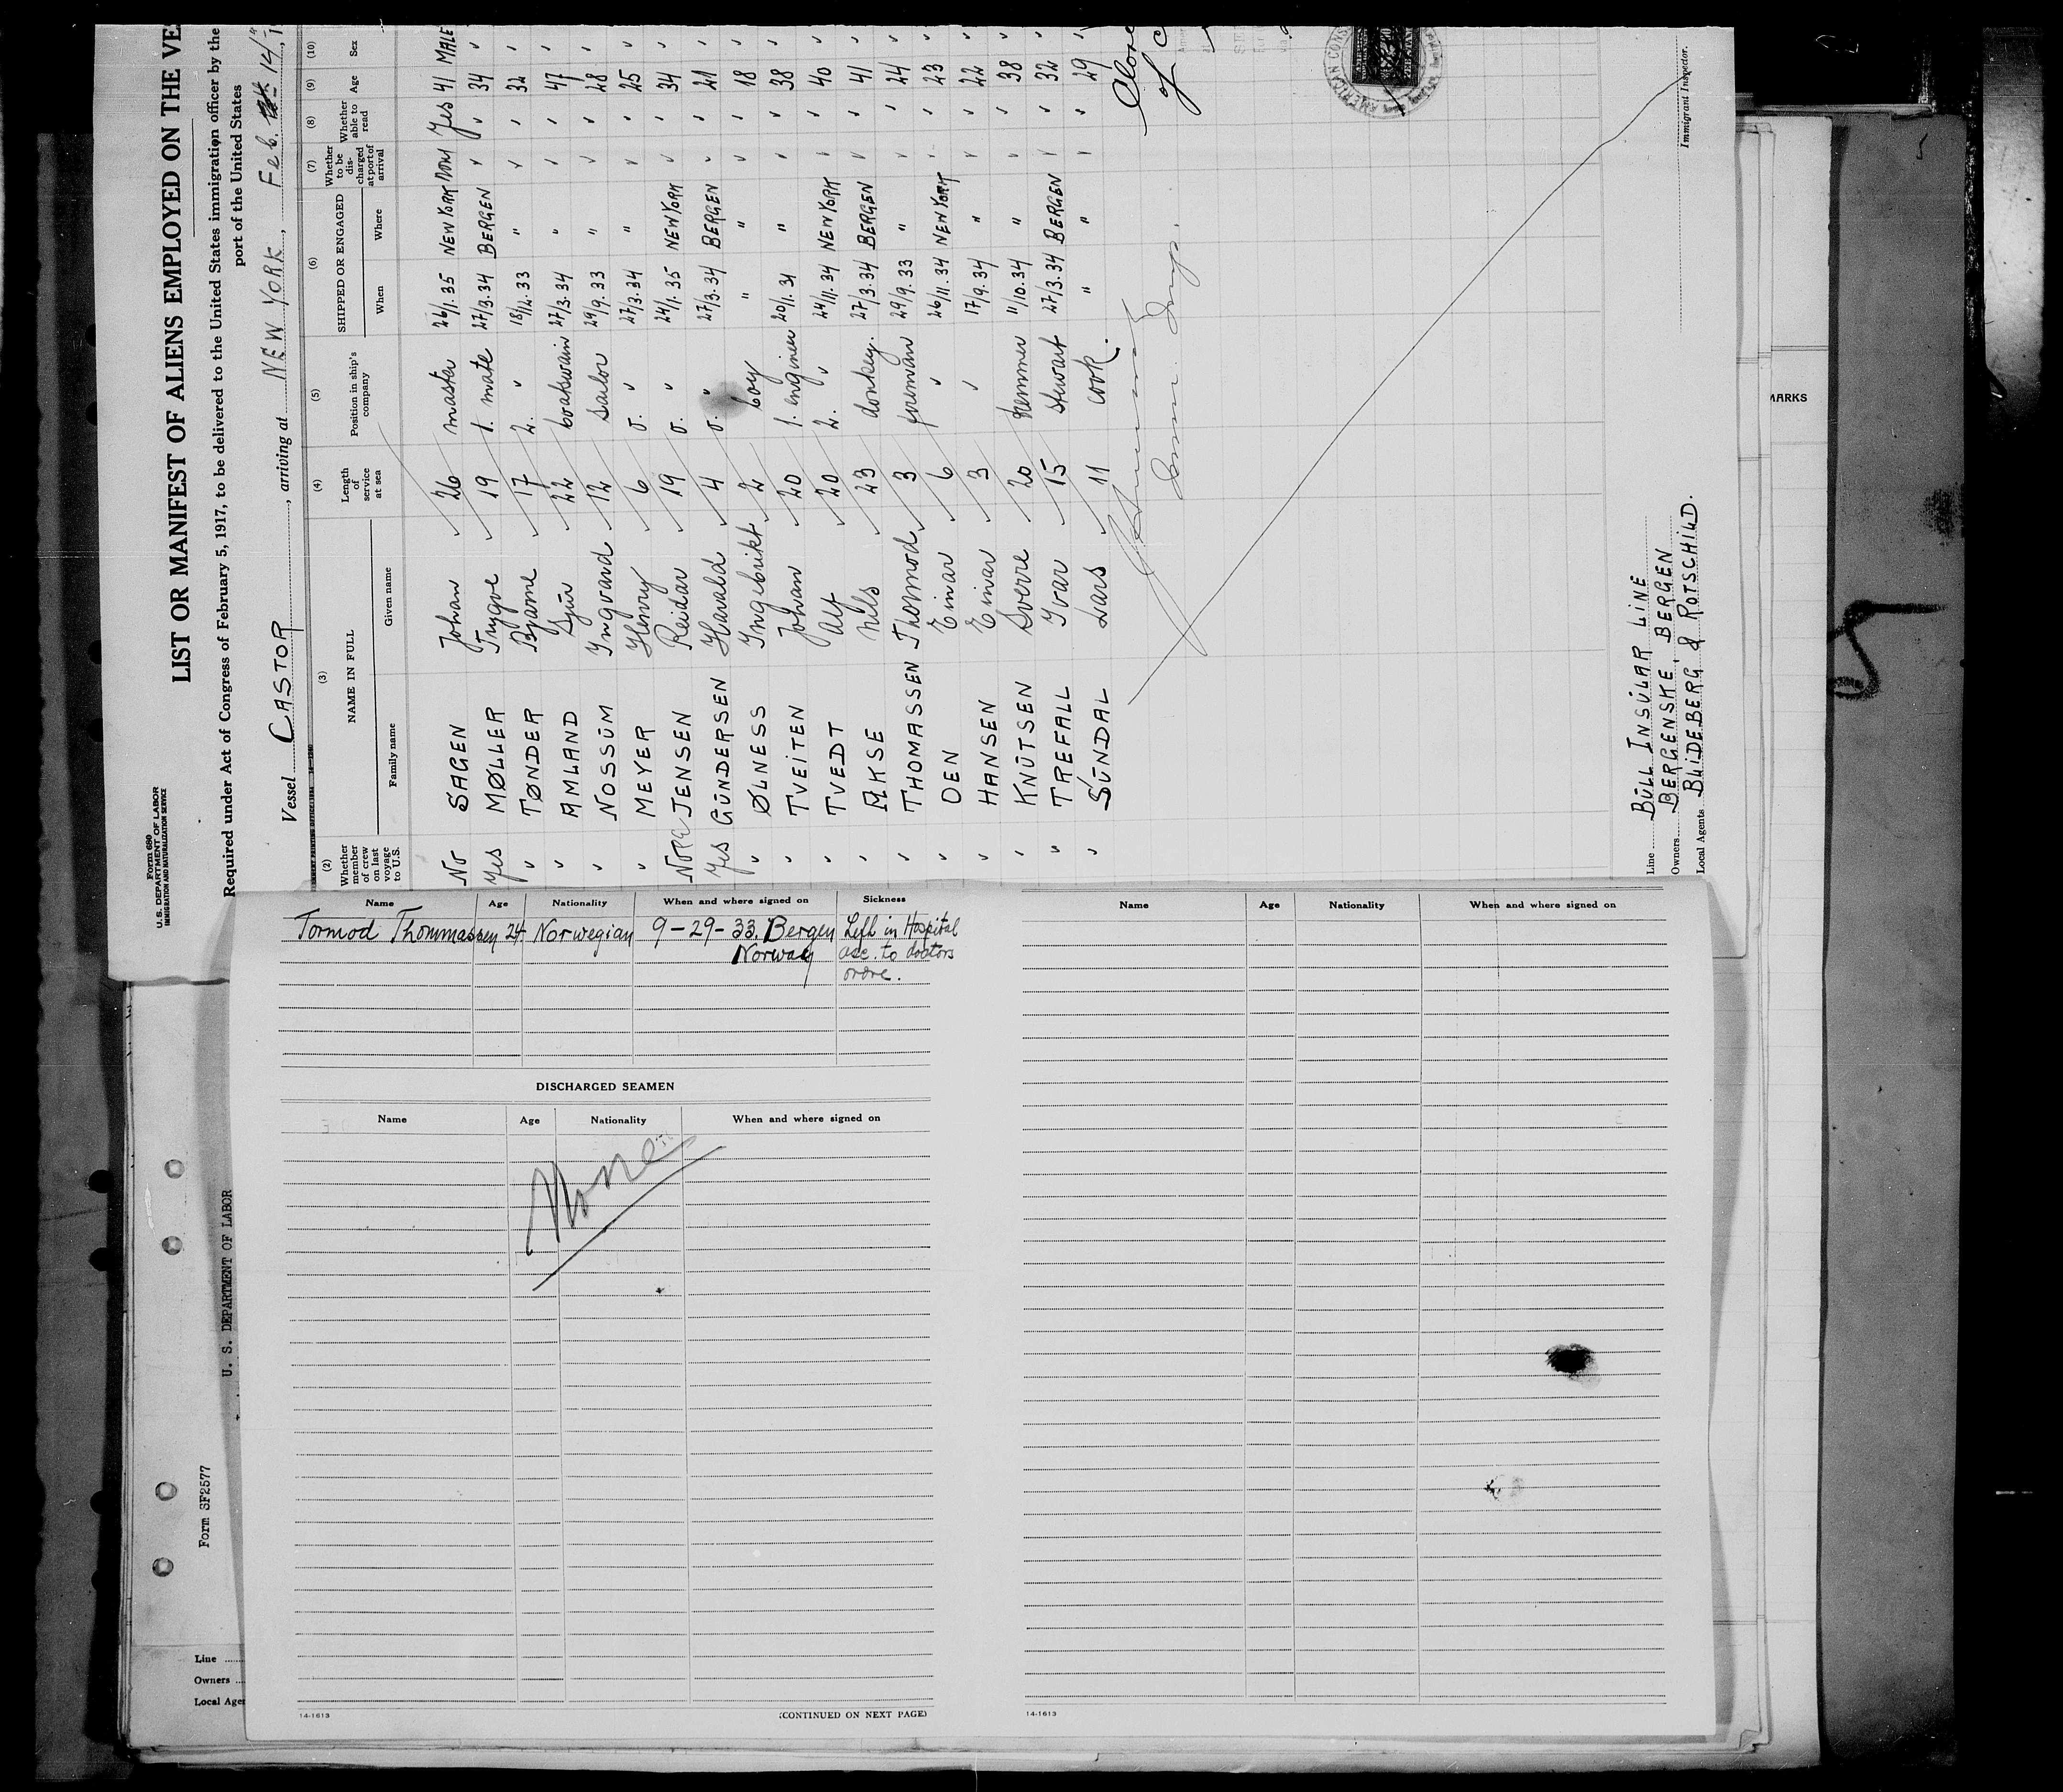 Form 680
U. S. DEPARTMENT OF LABOR
IMMIGRATION AND NATURALIZATION SERVICE
LIST OR MANIFEST OF ALIENS EMPLOYED ON THE VE
Required under Act of Congress of February 5, 1917, to be delivered to the United States immigration officer by the
port of the United States
Vessel CASTOR, arriving at NEW YORK, Feb. 14/
(2) Whether member of crew on last voyage to U.S.
(3) NAME IN FULL
Family name
Given name
(4) Length of service at sea
(5) Position in ship's company
(6) SHIPPED OR ENGAGED
When
Where
(7) Whether to be discharged at port of arrival
(8) Whether able to read
(9) Age
(10) Sex
No SAGEN Johan 26 master 26/1.35 NEW YORK Yes 41 MALE
Yes MØLLER Trygve 19 1. mate 27/3.34 BERGEN " 34 "
" TØNDER Bjarne 17 2. " 18/12.33 " " 32 "
" AMLAND Sjur 22 boatswain 27/3.34 " " 47 "
" NOSSUM Ingvard 12 sailor 29/9.33 " " 28 "
" MEYER Henry 6 o. " 27/3.34 " " 25 "
JENSEN Reidar 19 o. " 24/1.35 NEW YORK " 34 "
Yes GUNDERSEN Harald 4 o. " 27/3.34 BERGEN " 21 "
" ØLNESS Ingebrikt 2 boy " " " 18 "
" TVEITEN Johan 20 1. engineer 20/1.34 " " 38 "
" TVEDT Alf 20 2. " 24/11.34 NEW YORK " 40 "
" AKSE Nils 23 donkey. 27/3.34 BERGEN " 41 "
" THOMASSEN Thormod 3 fireman 29/9.33 " " 24 "
" OEN Einar 6 " 26/11.34 NEW YORK " 23 "
" HANSEN Einar 3 " 17/9.34 " " 22 "
" KNUTSEN Sverre 20 tremmer 11/10.34 " " 38 "
" TREFALL Yvar 15 stewart 27/3.34 BERGEN " 32 "
" SUNDAL Lars 11 cook. " " " 29 "
Closed
of C
AMERICAN CONS
Line BULL INSULAR LINE
Owners BERGENSKE, BERGEN
Local Agents BLIDEBERG & ROTSCHILD.
Immigrant Inspector.
MARKS
Name Age Nationality When and where signed on Sickness
Tormod Thommassen 24. Norwegian 9-29-33. Bergen Left in Hospital
Norway acc. to doctors
ordre.
DISCHARGED SEAMEN
Name Age Nationality When and where signed on
None
14-1613
(CONTINUED ON NEXT PAGE)
Name Age Nationality When and where signed on
14-1613
U. S. DEPARTMENT OF LABOR
Form SF2577
Line
Owners
Local Age